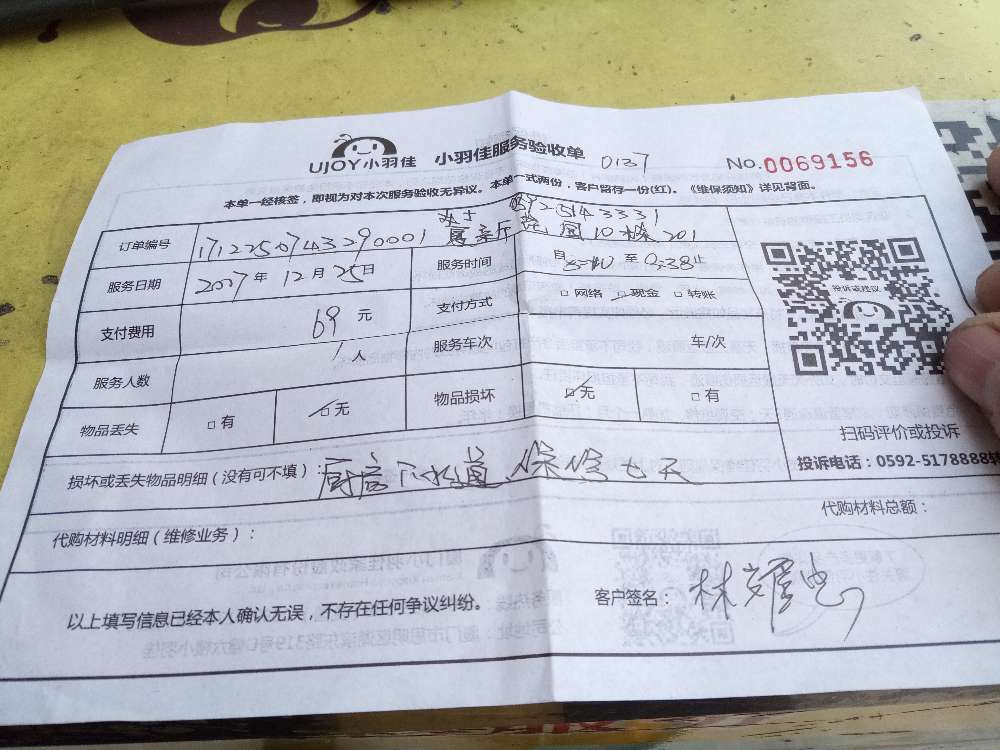 UJOY小羽佳 小羽佳服务验收单 0137 No.0069156
本单一经核签，即视为对本次服务验收无异议。本单一式两份，客户留存一份(红)。《维保须知》详见背面。
订单编号 17122507433290001 园10栋201
服务日期 2007年12月25日 服务时间 自 至 止
支付费用 69元 支付方式 □网络 ☑现金 □转账
服务人数 1人 服务车次 车/次
物品丢失 □有 ☑无 物品损坏 ☑无 □有
投诉或建议
扫码评价或投诉
投诉电话：0592-5178888转
损坏或丢失物品明细（没有可不填）：厨房下水道，保修七天
代购材料明细（维修业务）： 代购材料总额：
以上填写信息已经本人确认无误，不存在任何争议纠纷。 客户签名：林耀忠